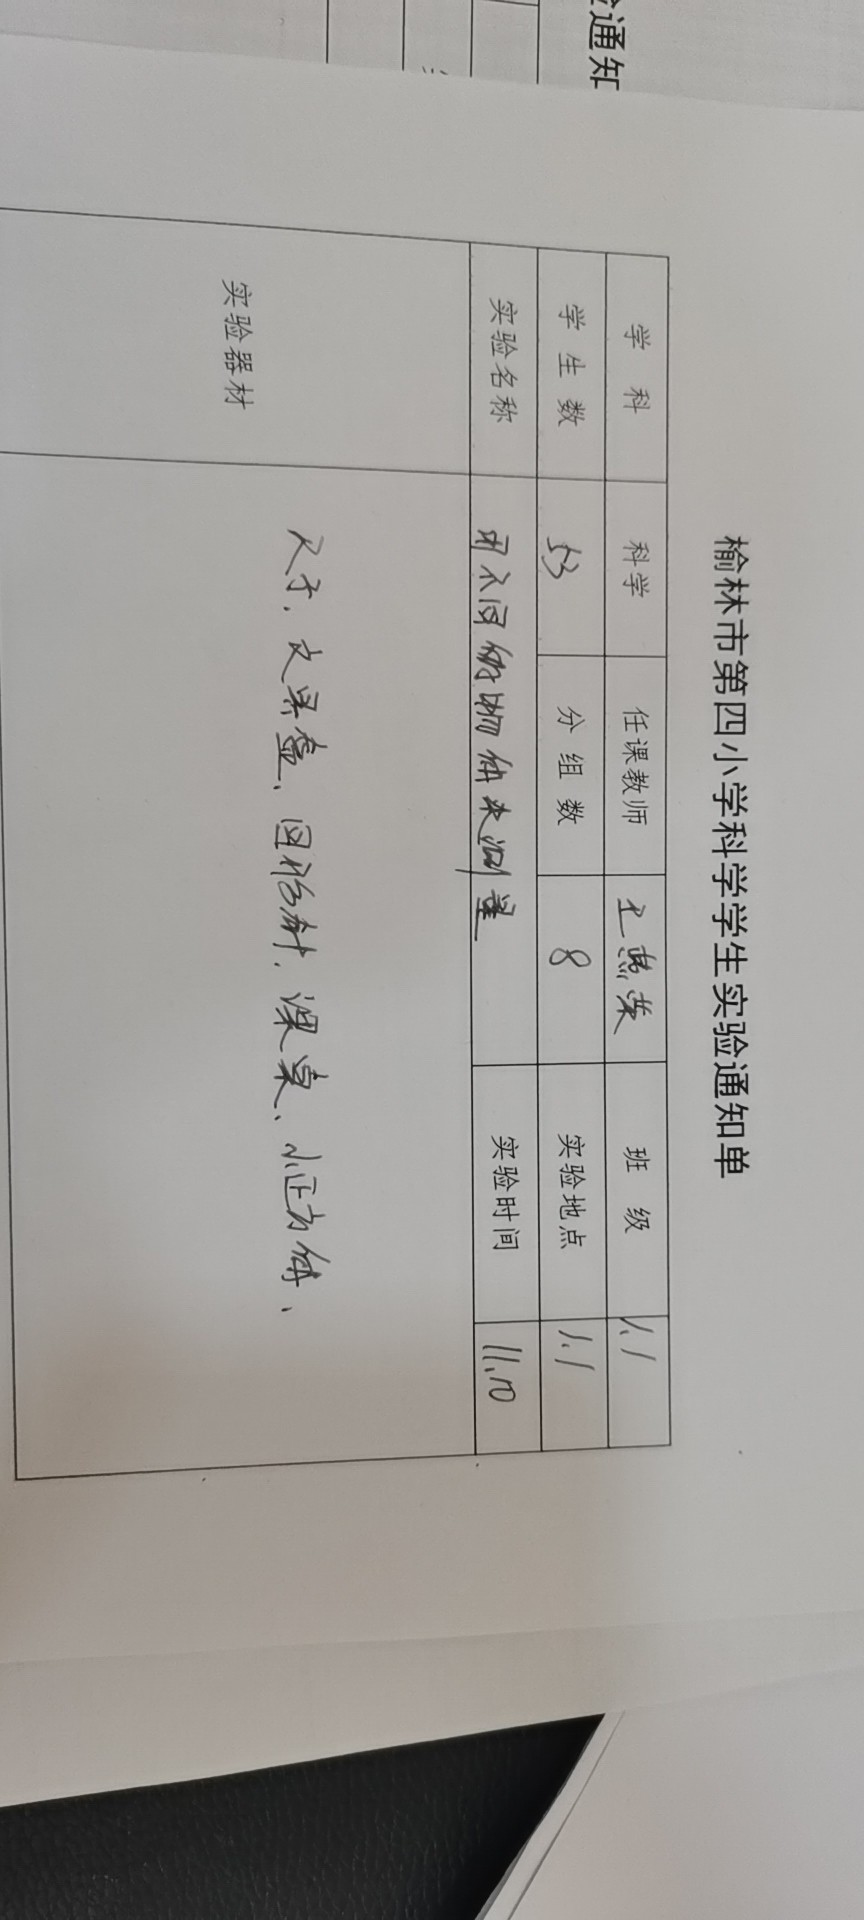 验通知
榆林市第四小学科学学生实验通知单
学 科 科学 任课教师 班 级 1.1
学 生 数 53 分 组 数 8 实验地点 1.1
实验名称 用不同的物体来测量 实验时间 11.10
实验器材 尺子、文具盒、回形针、课桌、小正方体、